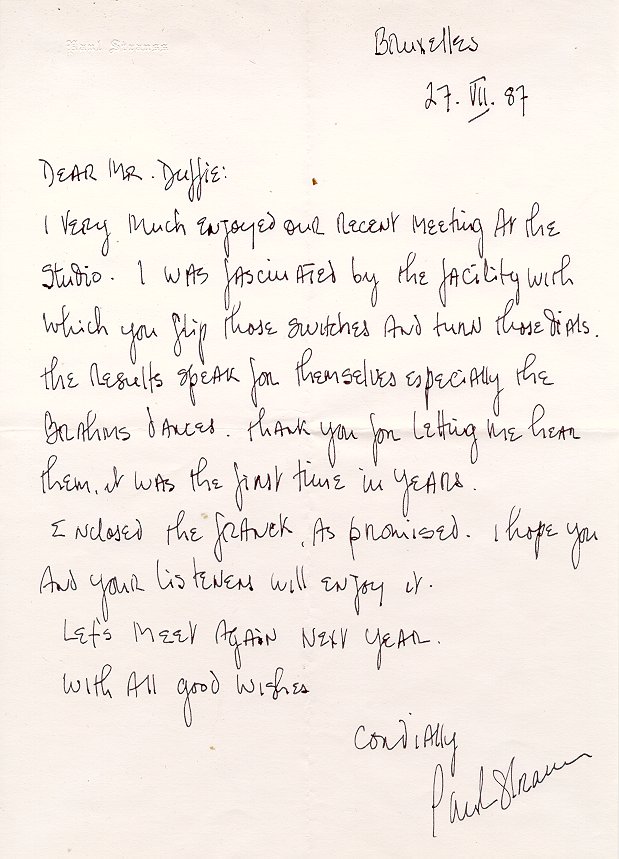 Paul Strauss
Bruxelles
27. VII. 87
Dear Mr. Duffie:
I very much enjoyed our recent meeting at the
studio. I was fascinated by the facility with
which you flip those switches and turn those dials.
the results speak for themselves especially the
Brahms dances. thank you for letting me hear
them, it was the first time in years.
Enclosed the Franck, as promised. I hope you
and your listeners will enjoy it.
Let's meet again next year.
With all good wishes
Cordially
Paul Strauss